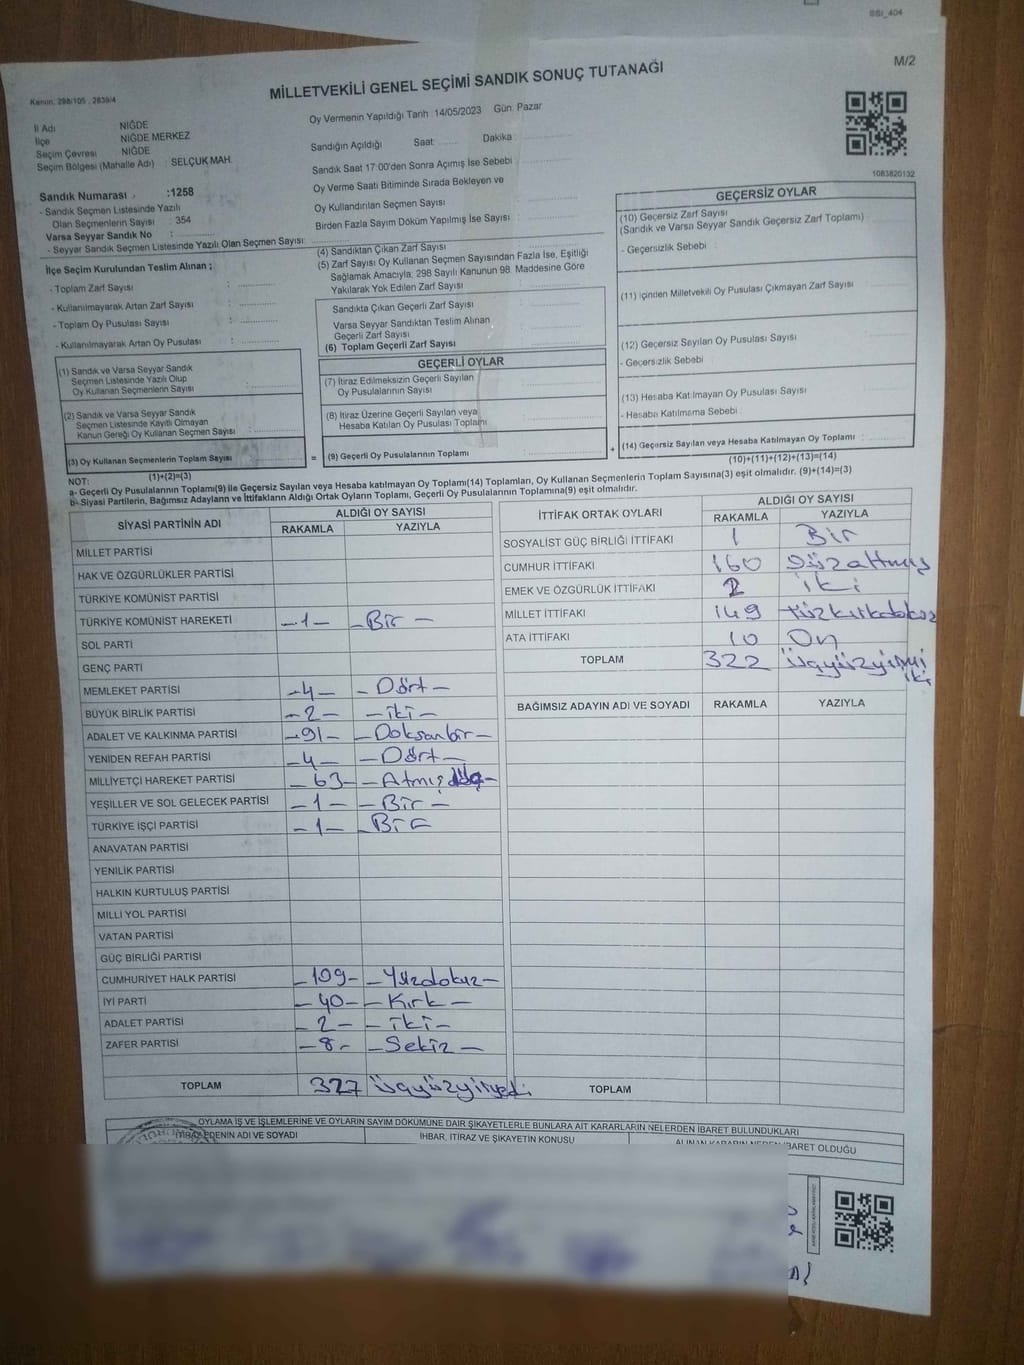 BSI_404
M/2
MİLLETVEKİLİ GENEL SEÇİMİ SANDIK SONUÇ TUTANAĞI
Kanun: 298/105 , 2839/4
İl Adı NİĞDE
İlçe NİĞDE MERKEZ
Seçim Çevresi NİĞDE
Seçim Bölgesi (Mahalle Adı) : SELÇUK MAH.
Sandık Numarası :1258
- Sandık Seçmen Listesinde Yazılı
Olan Seçmenlerin Sayısı : 354
Varsa Seyyar Sandık No :
- Seyyar Sandık Seçmen Listesinde Yazılı Olan Seçmen Sayısı:
Oy Vermenin Yapıldığı Tarih :14/05/2023 Gün: Pazar
Sandığın Açıldığı Saat: Dakika :
Sandık Saat 17:00'den Sonra Açılmış İse Sebebi :
Oy Verme Saati Bitiminde Sırada Bekleyen ve
Oy Kullandırılan Seçmen Sayısı :
Birden Fazla Sayım Döküm Yapılmış İse Sayısı :
1083820132
İlçe Seçim Kurulundan Teslim Alınan ;
- Toplam Zarf Sayısı :
- Kullanılmayarak Artan Zarf Sayısı :
- Toplam Oy Pusulası Sayısı :
- Kullanılmayarak Artan Oy Pusulası :
(1) Sandık ve Varsa Seyyar Sandık
Seçmen Listesinde Yazılı Olup
Oy Kullanan Seçmenlerin Sayısı :
(2) Sandık ve Varsa Seyyar Sandık
Seçmen Listesinde Kayıtlı Olmayan
Kanun Gereği Oy Kullanan Seçmen Sayısı :
(3) Oy Kullanan Seçmenlerin Toplam Sayısı :
(1)+(2)=(3)
(4) Sandıktan Çıkan Zarf Sayısı :
(5) Zarf Sayısı Oy Kullanan Seçmen Sayısından Fazla İse, Eşitliği
Sağlamak Amacıyla, 298 Sayılı Kanunun 98. Maddesine Göre
Yakılarak Yok Edilen Zarf Sayısı :
Sandıkta Çıkan Geçerli Zarf Sayısı :
Varsa Seyyar Sandıktan Teslim Alınan
Geçerli Zarf Sayısı :
(6) Toplam Geçerli Zarf Sayısı :
GEÇERLİ OYLAR
(7) İtiraz Edilmeksizin Geçerli Sayılan
Oy Pusulalarının Sayısı :
(8) İtiraz Üzerine Geçerli Sayılan veya
Hesaba Katılan Oy Pusulası Toplamı :
= (9) Geçerli Oy Pusulalarının Toplamı :
GEÇERSİZ OYLAR
(10) Geçersiz Zarf Sayısı
(Sandık ve Varsa Seyyar Sandık Geçersiz Zarf Toplamı) :
- Geçersizlik Sebebi :
(11) İçinden Milletvekili Oy Pusulası Çıkmayan Zarf Sayısı :
(12) Geçersiz Sayılan Oy Pusulası Sayısı :
- Geçersizlik Sebebi :
(13) Hesaba Katılmayan Oy Pusulası Sayısı :
- Hesaba Katılmama Sebebi :
+ (14) Geçersiz Sayılan veya Hesaba Katılmayan Oy Toplamı :
(10)+(11)+(12)+(13)=(14)
NOT:
a- Geçerli Oy Pusulalarının Toplamı(9) ile Geçersiz Sayılan veya Hesaba katılmayan Oy Toplamı(14) Toplamları, Oy Kullanan Seçmenlerin Toplam Sayısına(3) eşit olmalıdır. (9)+(14)=(3)
b- Siyasi Partilerin, Bağımsız Adayların ve İttifakların Aldığı Ortak Oyların Toplamı, Geçerli Oy Pusulalarının Toplamına(9) eşit olmalıdır.
SİYASİ PARTİNİN ADI ALDIĞI OY SAYISI
RAKAMLA YAZIYLA
MİLLET PARTİSİ
HAK VE ÖZGÜRLÜKLER PARTİSİ
TÜRKİYE KOMÜNİST PARTİSİ
TÜRKİYE KOMÜNİST HAREKETİ -1- -Bir-
SOL PARTİ
GENÇ PARTİ
MEMLEKET PARTİSİ -4- -Dört-
BÜYÜK BİRLİK PARTİSİ -2- -iki-
ADALET VE KALKINMA PARTİSİ -91- -Doksanbir-
YENİDEN REFAH PARTİSİ -4- -Dört-
MİLLİYETÇİ HAREKET PARTİSİ -63- -Atmış üç-
YEŞİLLER VE SOL GELECEK PARTİSİ -1- -Bir-
TÜRKİYE İŞÇİ PARTİSİ -1- -Bir
ANAVATAN PARTİSİ
YENİLİK PARTİSİ
HALKIN KURTULUŞ PARTİSİ
MİLLİ YOL PARTİSİ
VATAN PARTİSİ
GÜÇ BİRLİĞİ PARTİSİ
CUMHURİYET HALK PARTİSİ -109- -Yüzdokuz-
İYİ PARTİ -40- -Kırk-
ADALET PARTİSİ -2- -iki-
ZAFER PARTİSİ -8- -Sekiz-
TOPLAM 327 üçyüzyirmiyedi
İTTİFAK ORTAK OYLARI ALDIĞI OY SAYISI
RAKAMLA YAZIYLA
SOSYALİST GÜÇ BİRLİĞİ İTTİFAKI 1 Bir
CUMHUR İTTİFAKI 160 Yüzaltmış
EMEK VE ÖZGÜRLÜK İTTİFAKI 2 iki
MİLLET İTTİFAKI 149 Yüzkırkdokuz
ATA İTTİFAKI 10 On
TOPLAM 322 üçyüzyirmi iki
BAĞIMSIZ ADAYIN ADI VE SOYADI RAKAMLA YAZIYLA
TOPLAM
OYLAMA İŞ VE İŞLEMLERİNE VE OYLARIN SAYIM DÖKÜMÜNE DAİR ŞİKAYETLERLE BUNLARA AİT KARARLARIN NELERDEN İBARET BULUNDUKLARI
EDENİN ADI VE SOYADI İHBAR, İTİRAZ VE ŞİKAYETİN KONUSU ALINAN KARARIN NEDEN İBARET OLDUĞU